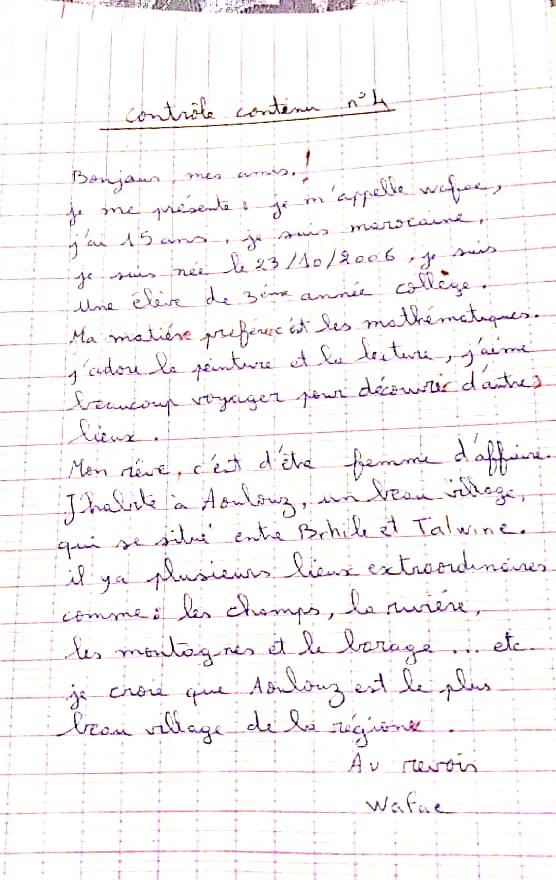 contrôle contenu n°4
Bonjour, mes amis.!
je me présente : je m'appelle wafae,
j'ai 15 ans, je suis marocaine,
je suis née le 23/10/2006, je suis
une élève de 3ème année collège.
Ma matière preférée ét les mathématiques.
j'adore la peinture et la lecture, j'aime
beaucoup voyager pour découvrir d'autres
lieux.
Mon rêve, c'ést d'être femme d'affaire.
J'habite à Aoulouz, un beau village,
qui se situé entre Brhile et Talwine.
il ya plusieurs lieux extraordinaires
comme : les champs, la rivière,
les montagnes et le barage ... etc.
je crore que Aoulouz est le plus
beau village de la régione.
Au revoir
Wafae